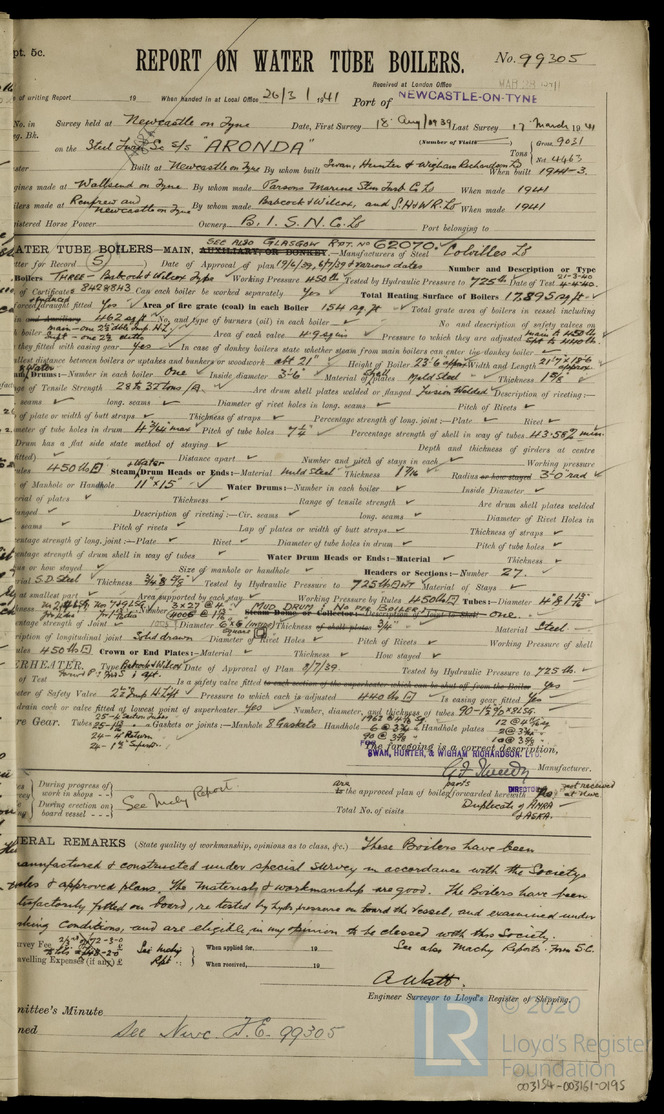 pt. 5c.
REPORT ON WATER TUBE BOILERS.
No. 99305
Received at London Office
of writing Report 19 When handed in at Local Office 26/3/1941 Port of NEWCASTLE-ON-TYNE
No. in Survey held at Newcastle on Tyne Date, First Survey 18 Aug/1939 Last Survey 17 March 1941
g. Bk. (Number of Visits
on the Steel S/S "ARONDA" Tons Gross 9031
Built at Newcastle on Tyne By whom built Swan, Hunter & Wigham Richardson Ld When built 1941-3.
gines made at Wallsend on Tyne By whom made Parsons Marine Stm Turb Co Ld When made 1941
ilers made at Renfrew and Newcastle on Tyne By whom made Babcock & Wilcox, and S.H & W.R. Ld When made 1941
gistered Horse Power Owners B. I. S. N. Co. Ld Port belonging to
SEE ALSO GLASGOW RPT. NO 62070.
ATER TUBE BOILERS—MAIN, AUXILIARY, OR DONKEY.—Manufacturers of Steel Colvilles Ld
tter for Record (S) Date of Approval of plan 19/6/39, 6/7/39 & various dates Number and Description or Type
Boilers THREE - Babcock & Wilcox Type Working Pressure 450 lb Tested by Hydraulic Pressure to 725 lb Date of Test 21-3-40
of Certificate Can each boiler be worked separately Yes Total Heating Surface of Boilers 17,895 sq ft
forced draught fitted Yes Area of fire grate (coal) in each Boiler 154 sq. ft Total grate area of boilers in vessel including
462 sq ft No. and type of burners (oil) in each boiler No and description of safety valves on
boiler Area of each valve 4.9 sq ins Pressure to which they are adjusted
they fitted with easing gear Yes In case of donkey boilers state whether steam from main boilers can enter the donkey boiler
llest distance between boilers or uptakes and bunkers or woodwork abt 21" Height of Boiler 23'-6 approx Width and Length 21'-7 x 18'-6 approx.
Drums:—Number in each boiler One Inside diameter 3'-6" Material of plates Mild Steel Thickness 1 5/8"
ge of Tensile Strength 28 to 32 tons Are drum shell plates welded or flanged Fusion Welded Description of riveting:—
seams long. seams Diameter of rivet holes in long. seams Pitch of Rivets
of plate or width of butt straps Thickness of straps Percentage strength of long. joint:—Plate Rivet
meter of tube holes in drum Pitch of tube holes 7 1/4 Percentage strength of shell in way of tubes 43.58% min
Drum has a flat side state method of staying Depth and thickness of girders at centre
fitted) Distance apart Number and pitch of stays in each Working pressure
ules 450 lb Steam & Water Drum Heads or Ends:—Material Mild Steel Thickness 1 7/16 Radius or how stayed 3'-0 rad
of Manhole or Handhole 11" x 15" Water Drums:—Number in each boiler Inside Diameter
erial of plates Thickness Range of tensile strength Are drum shell plates welded
anged Description of riveting:—Cir. seams long. seams Diameter of Rivet Holes in
seams Pitch of rivets Lap of plates or width of butt straps Thickness of straps
entage strength of long. joint:—Plate Rivet Diameter of tube holes in drum Pitch of tube holes
entage strength of drum shell in way of tubes Water Drum Heads or Ends:—Material Thickness
us or how stayed Size of manhole or handhole Headers or Sections:—Number 27.
rial S.D. Steel Thickness Tested by Hydraulic Pressure to 725 lb Material of Stays
at smallest part Area supported by each stay Working Pressure by Rules 450 lb Tubes:—Diameter
kness Number MUD DRUM No PER BOILER one.
entage strength of Joint Diameter 6" x 6 Thickness of shell plates 3/4" Material Steel
ription of longitudinal joint Solid drawn Diameter of Rivet Holes Pitch of Rivets Working Pressure of shell
ules 450 lb Crown or End Plates:—Material Thickness How stayed
ERHEATER. Type Babcock & Wilcox Date of Approval of Plan 8/7/39. Tested by Hydraulic Pressure to 725 lb.
of Test Is a safety valve fitted to each section of the superheater which can be shut off from the Boiler Yes
eter of Safety Valve Pressure to which each is adjusted 440 lb Is easing gear fitted Yes
drain cock or valve fitted at lowest point of superheater Yes Number, diameter, and thickness of tubes
re Gear. Tubes Gaskets or joints:—Manhole 8 Gaskets Handhole Handhole plates
24 - 4" Return
The foregoing is a correct description,
FOR SWAN, HUNTER, & WIGHAM RICHARDSON, LTD.
Manufacturer.
DIRECTOR
During progress of work in shops - -
During erection on board vessel - - -
See Mchy Report.
the approved plan of boiler forwarded herewith
Total No. of visits
Duplicate of AMRA
& ASKA.
ERAL REMARKS (State quality of workmanship, opinions as to class, &c.) These Boilers have been
manufactured & constructed under special survey in accordance with the Societys
rules & approved plans. The materials & workmanship are good. The Boilers have been
satisfactorily fitted on board, re tested by hydr pressure on board the vessel, and examined under
working conditions, and are eligible, in my opinion to be classed with this Society.
See also Machy Reports. Form 5C.
urvey Fee See Mchy When applied for, 19
velling Expenses (if any) £ Rpt. When received, 19
A. Watt.
Engineer Surveyor to Lloyd's Register of Shipping.
mittee's Minute
ned See Nwc. F.E. 99305
© 2020
LR
Lloyd's Register
Foundation
003154-003161-0195